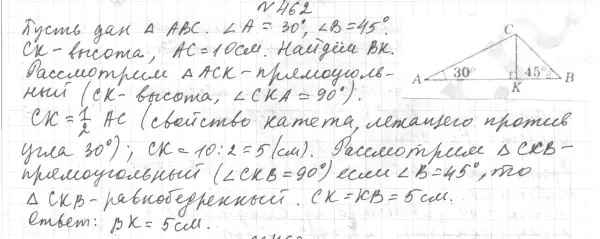 №462
Пусть дан △ ABC. ∠A = 30°, ∠B = 45°.
CK - высота, AC = 10см. Найдём BK.
Рассмотрим △ ACK - прямоуголь-
ный (CK - высота, ∠CKA = 90°).
CK = 1/2 AC (свойство катета, лежащего против
угла 30°); CK = 10 : 2 = 5 (см). Рассмотрим △ CKB -
прямоугольный (∠CKB = 90°) если ∠B = 45°, то
△ CKB - равнобедренный. CK = KB = 5 см.
Ответ: BK = 5 см.
C
A 30° 45° B
K